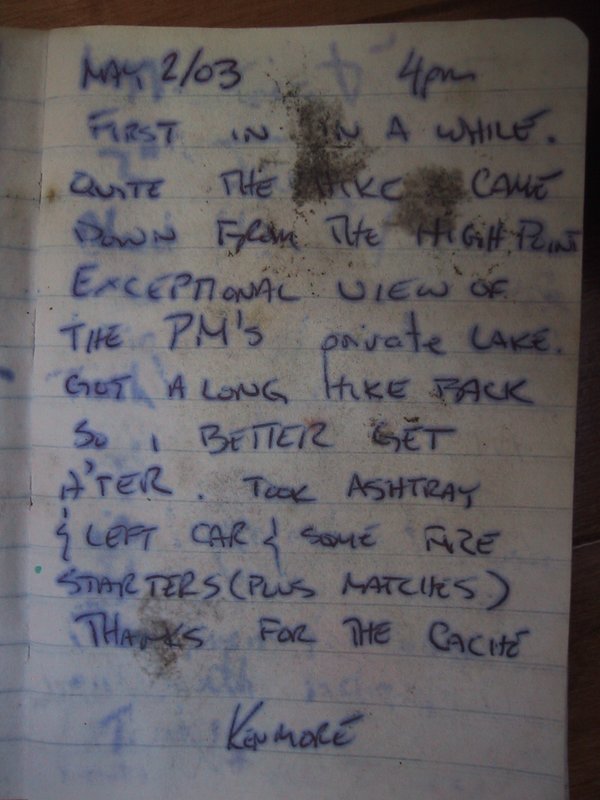 MAY 2/03 4pm
FIRST IN IN A WHILE.
QUITE THE HIKE CAME
DOWN FROM THE HIGH POINT
EXCEPTIONAL VIEW OF
THE PM'S private LAKE.
GOT A LONG HIKE BACK
SO I BETTER GET
A'TER. TOOK ASHTRAY
& LEFT CAR & SOME FIRE
STARTERS (PLUS MATCHES)
THANKS FOR THE CACHE
KENMORE